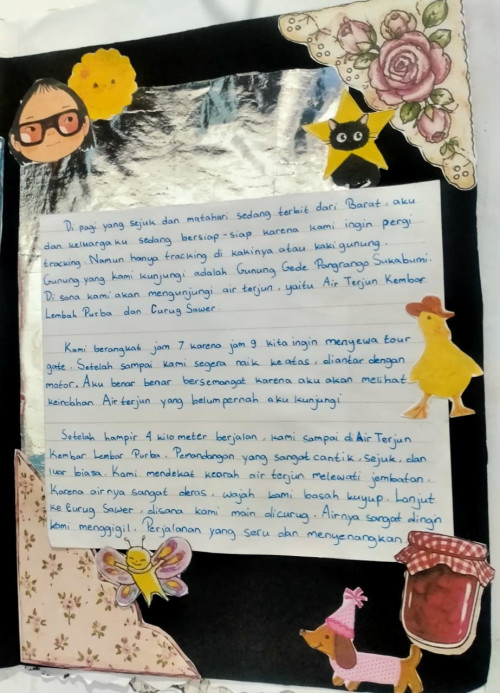 Di pagi yang sejuk dan matahari sedang terbit dari Barat, aku
dan keluarga ku sedang bersiap-siap karena kami ingin pergi
tracking. Namun hanya tracking di kakinya atau kaki gunung.
Gunung yang kami kunjungi adalah Gunung Gede Pangrango Sukabumi.
Di sana kami akan mengunjungi air terjun, yaitu Air Terjun Kembar
Lembah Purba dan Curug Sawer
Kami berangkat jam 7 karena jam 9 kita ingin menyewa tour
gate. Setelah sampai kami segera naik keatas, diantar dengan
motor. Aku benar benar bersemangat karena aku akan melihat
keindahan Air terjun yang belum pernah aku kunjungi
Setelah hampir 4 kilo meter berjalan, kami sampai di Air Terjun
Kembar Lembar Purba. Pemandangan yang sangat cantik, sejuk, dan
luar biasa. Kami mendekat kearah air terjun melewati jembatan.
Karena airnya sangat deras, wajah kami basah kuyup. Lanjut
ke Curug Sawer, disana kami main dicurug. Airnya sangat dingin
kami menggigil. Perjalanan yang seru dan menyenangkan